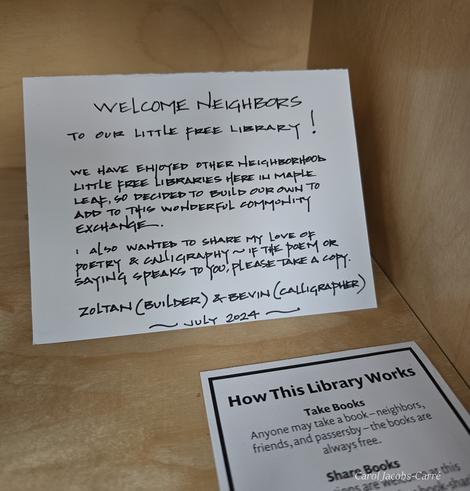 WELCOME NEIGHBORS
TO OUR LITTLE FREE LIBRARY!
WE HAVE ENJOYED OTHER NEIGHBORHOOD
LITTLE FREE LIBRARIES HERE IN MAPLE
LEAF, SO DECIDED TO BUILD OUR OWN TO
ADD TO THIS WONDERFUL COMMUNITY
EXCHANGE.
I ALSO WANTED TO SHARE MY LOVE OF
POETRY & CALLIGRAPHY ~ IF THE POEM OR
SAYING SPEAKS TO YOU, PLEASE TAKE A COPY.
ZOLTAN (BUILDER) & BEVIN (CALLIGRAPHER)
~ JULY 2024 ~
How This Library Works
Take Books
Anyone may take a book – neighbors,
friends, and passersby – the books are
always free.
Share Books
are welcome at this
book-shar
Carol Jacobs-Carré